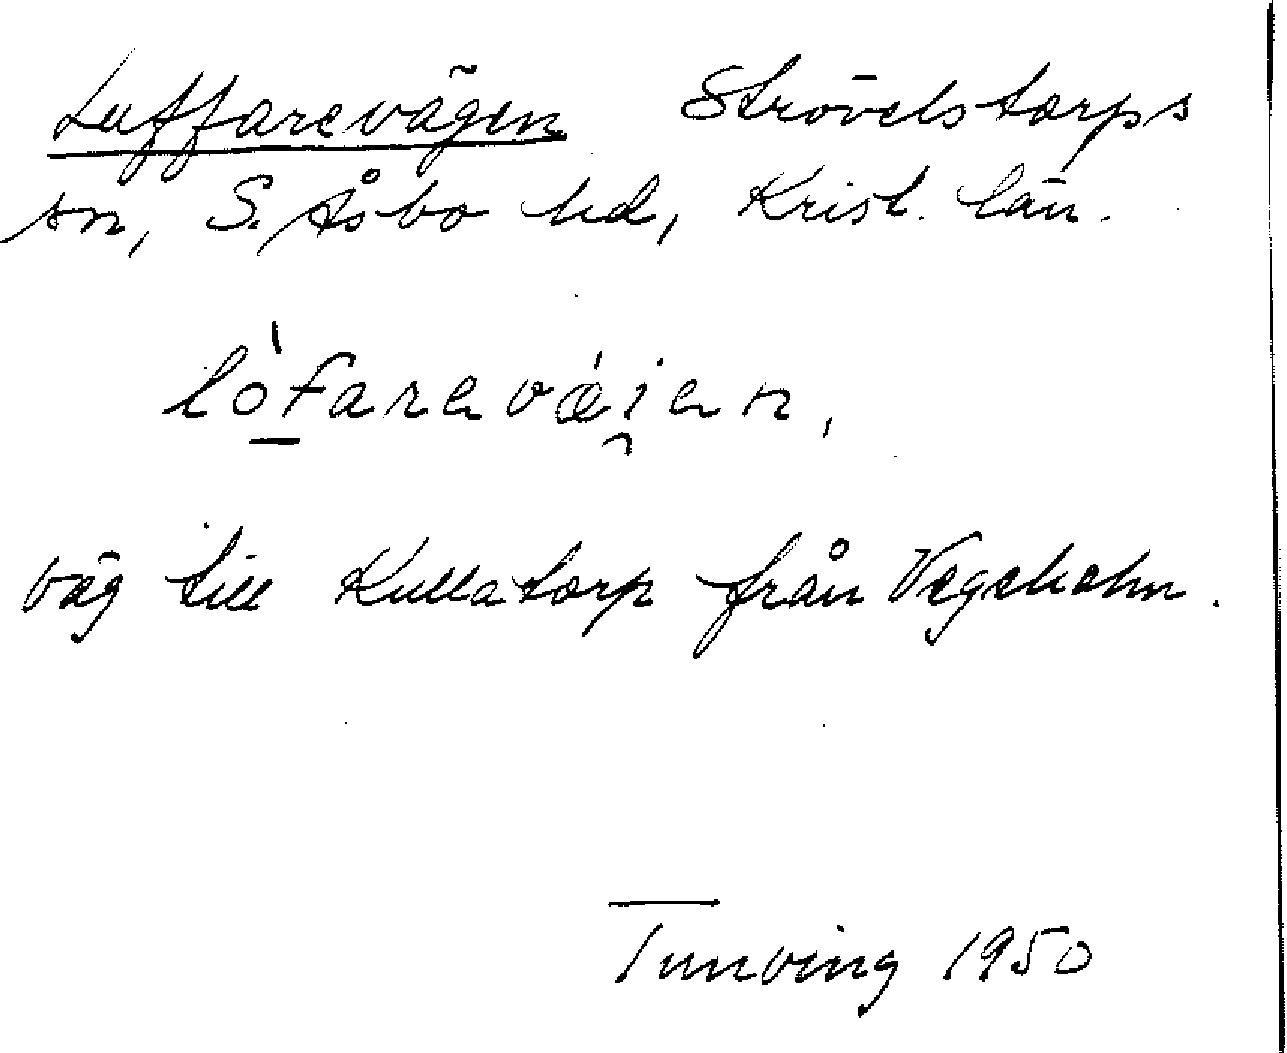 Luffarevägen Strövelstorps
sn, S. Åsbo hd, Krist. län.
lò̠farevǽi̯en,
väg till Kullatorp från Vegeholm.
Tunving 1950